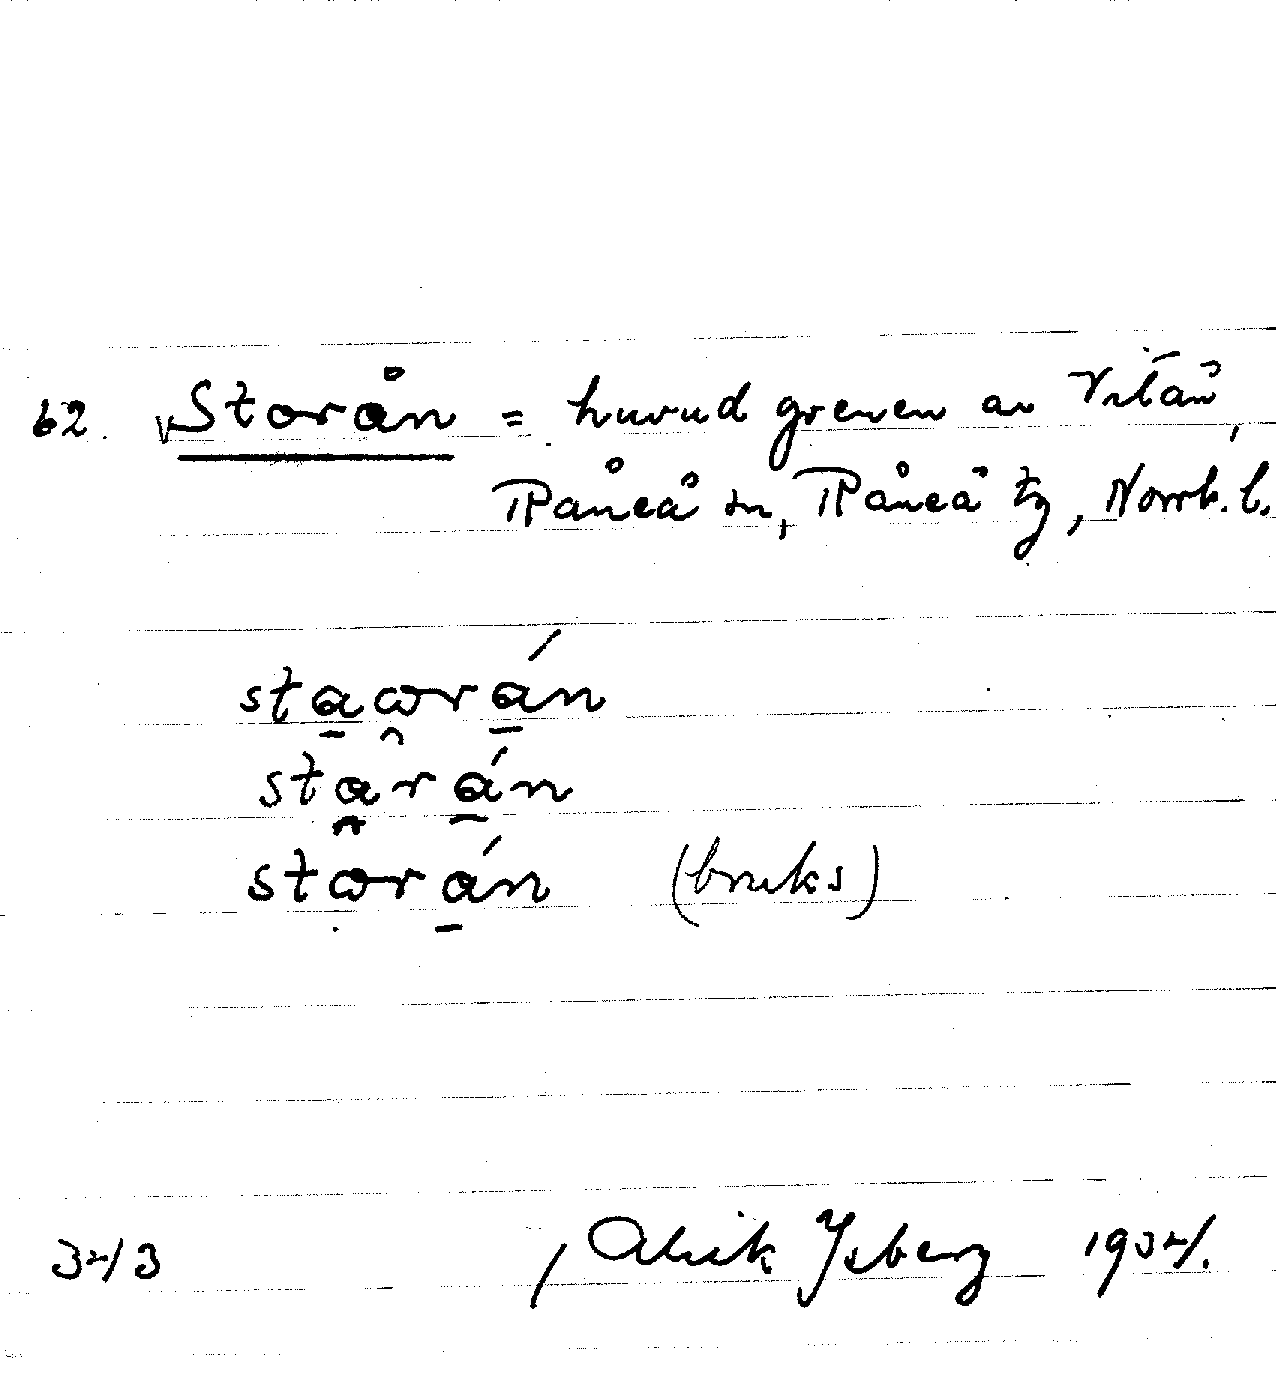 62. Storån = huvudgrenen av Vitån,
Råneå sn, Råneå tg, Norrb. l.
staωrán
starán
stωrán (bruks)
3413
Alrik Isberg 1934.